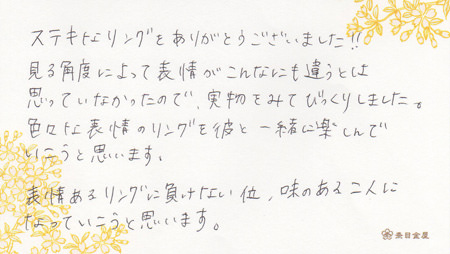 ステキなリングをありがとうございました!!
見る角度によって表情がこんなにも違うとは
思っていなかったので、実物をみてびっくりしました。
色々な表情のリングを彼と一緒に楽しんで
いこうと思います。
表情あるリングに負けない位、味のある二人に
なっていこうと思います。
杢目金屋